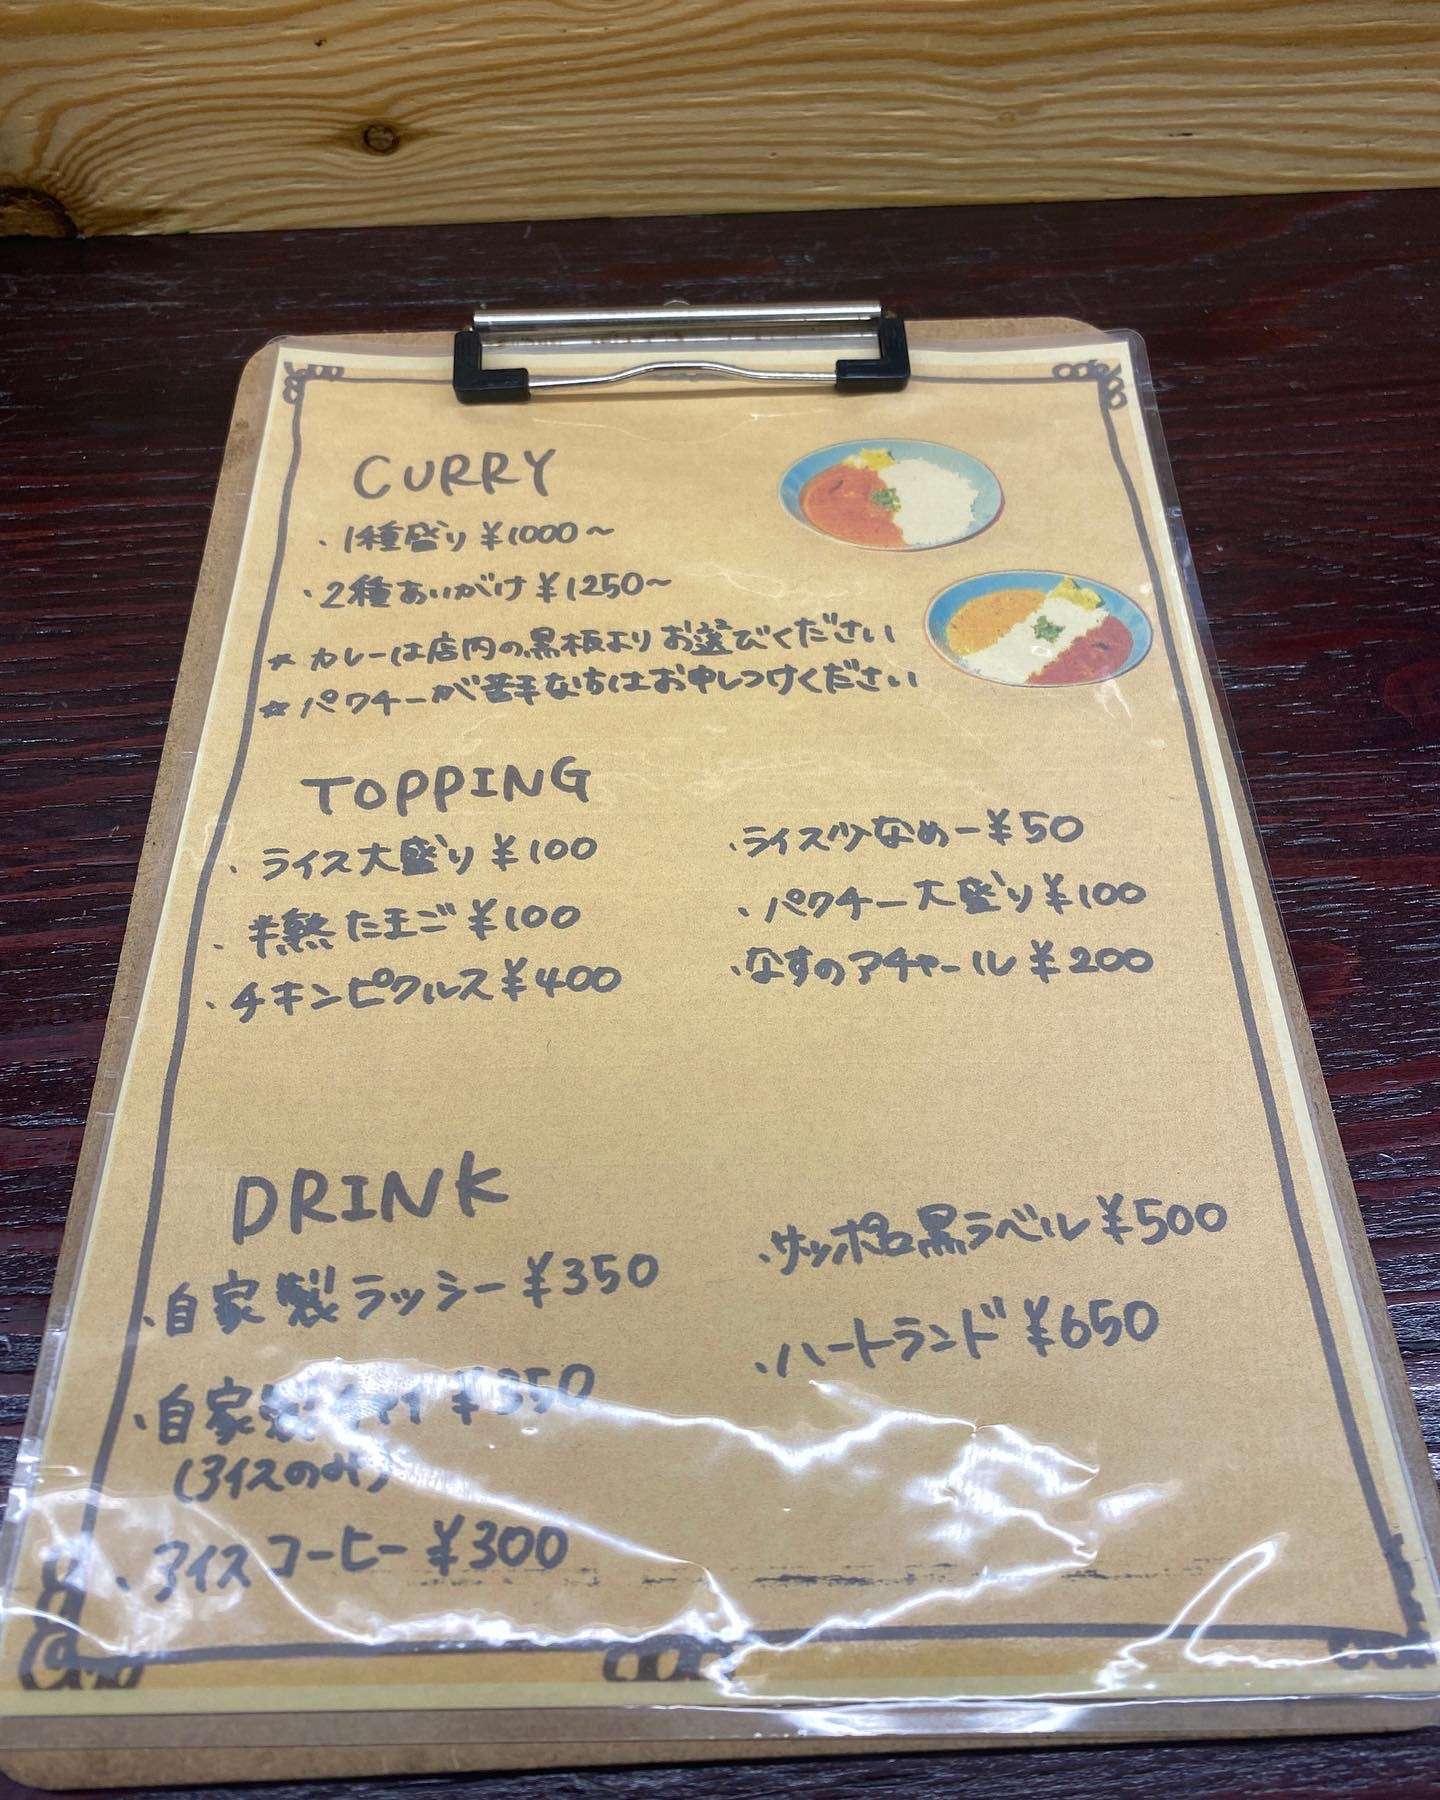 CURRY
・1種盛り ¥1000〜
・2種あいがけ ¥1250〜
☆ カレーは店内の黒板よりお選びください
☆ パクチーが苦手な方はお申しつけください
TOPPING
・ライス大盛り ¥100
・半熟たまご ¥100
・チキンピクルス ¥400
・ライス少なめ −¥50
・パクチー大盛り ¥100
・なすのアチャール ¥200
DRINK
・自家製ラッシー ¥350
・自家製チャイ ¥350
(アイスのみ)
・アイスコーヒー ¥300
・サッポロ黒ラベル ¥500
・ハートランド ¥650